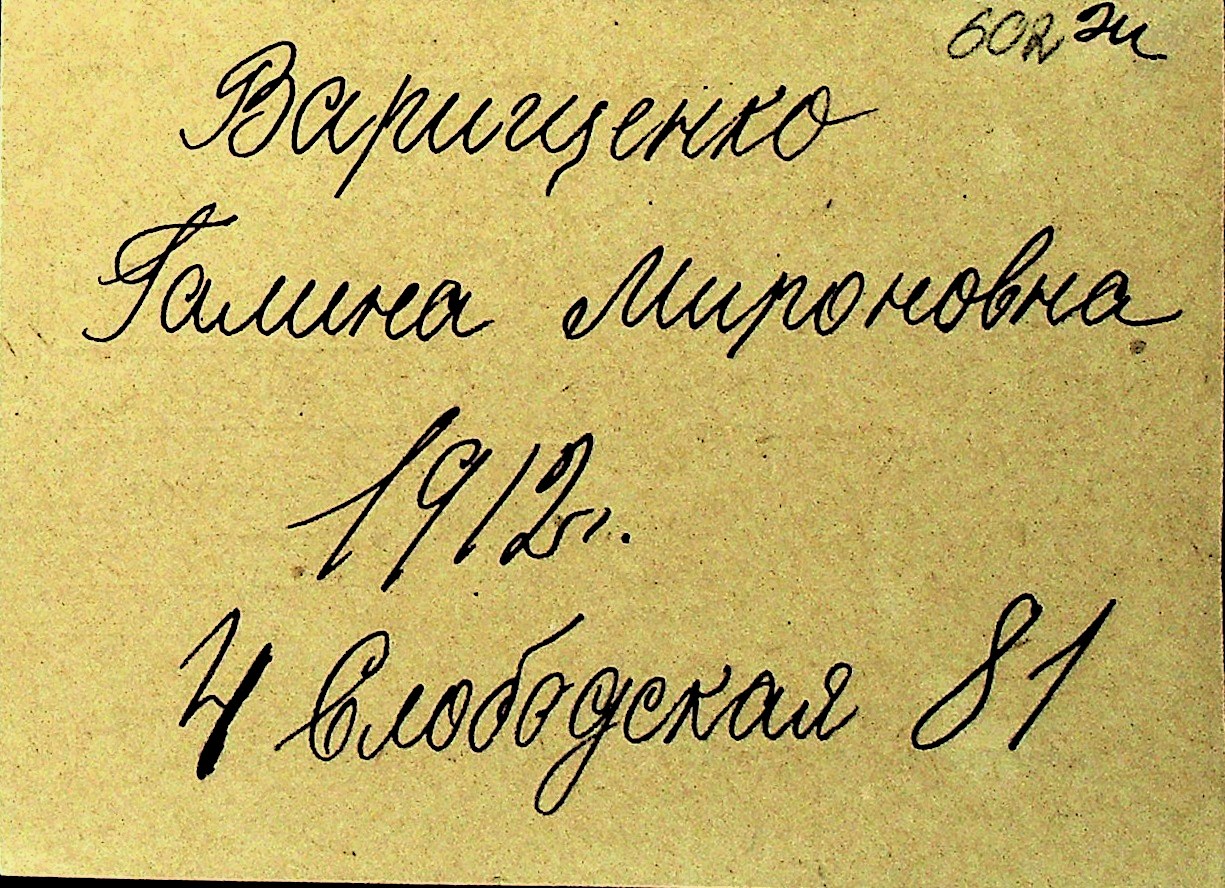 602 эи
Варищенко
Галина Мироновна
1912г.
4 Слободская 81